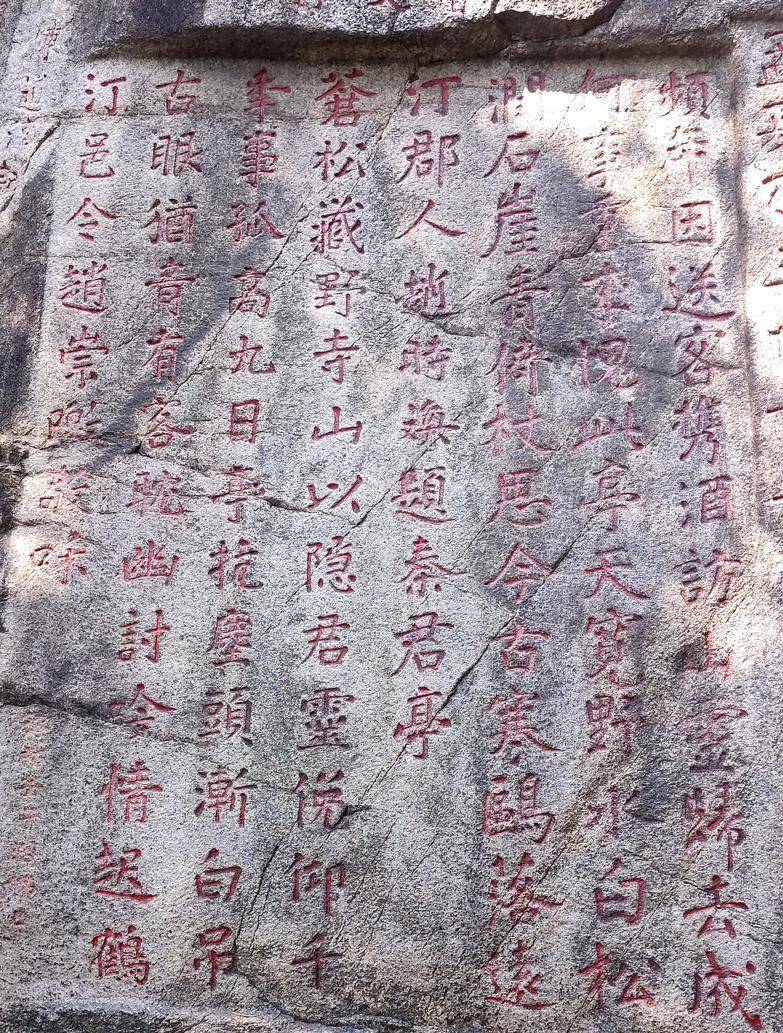 頻年因送客携酒訪山靈歸去成
何事重來愧此亭天寬野水白松
澗石崖青倚杖思今古寒鷗落遠
汀郡人趙時煥題秦君亭
蒼松藏野寺山以隐君靈俛仰千
秊事孤高九日亭抗塵頭漸白吊
古眼猶青有客耽幽討吟情起鶴
汀邑令趙崇